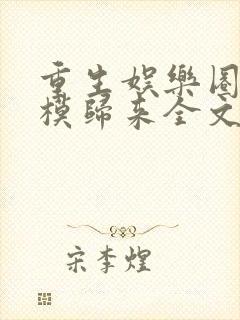 重生娱樂圈
模歸来全文
宋李煌